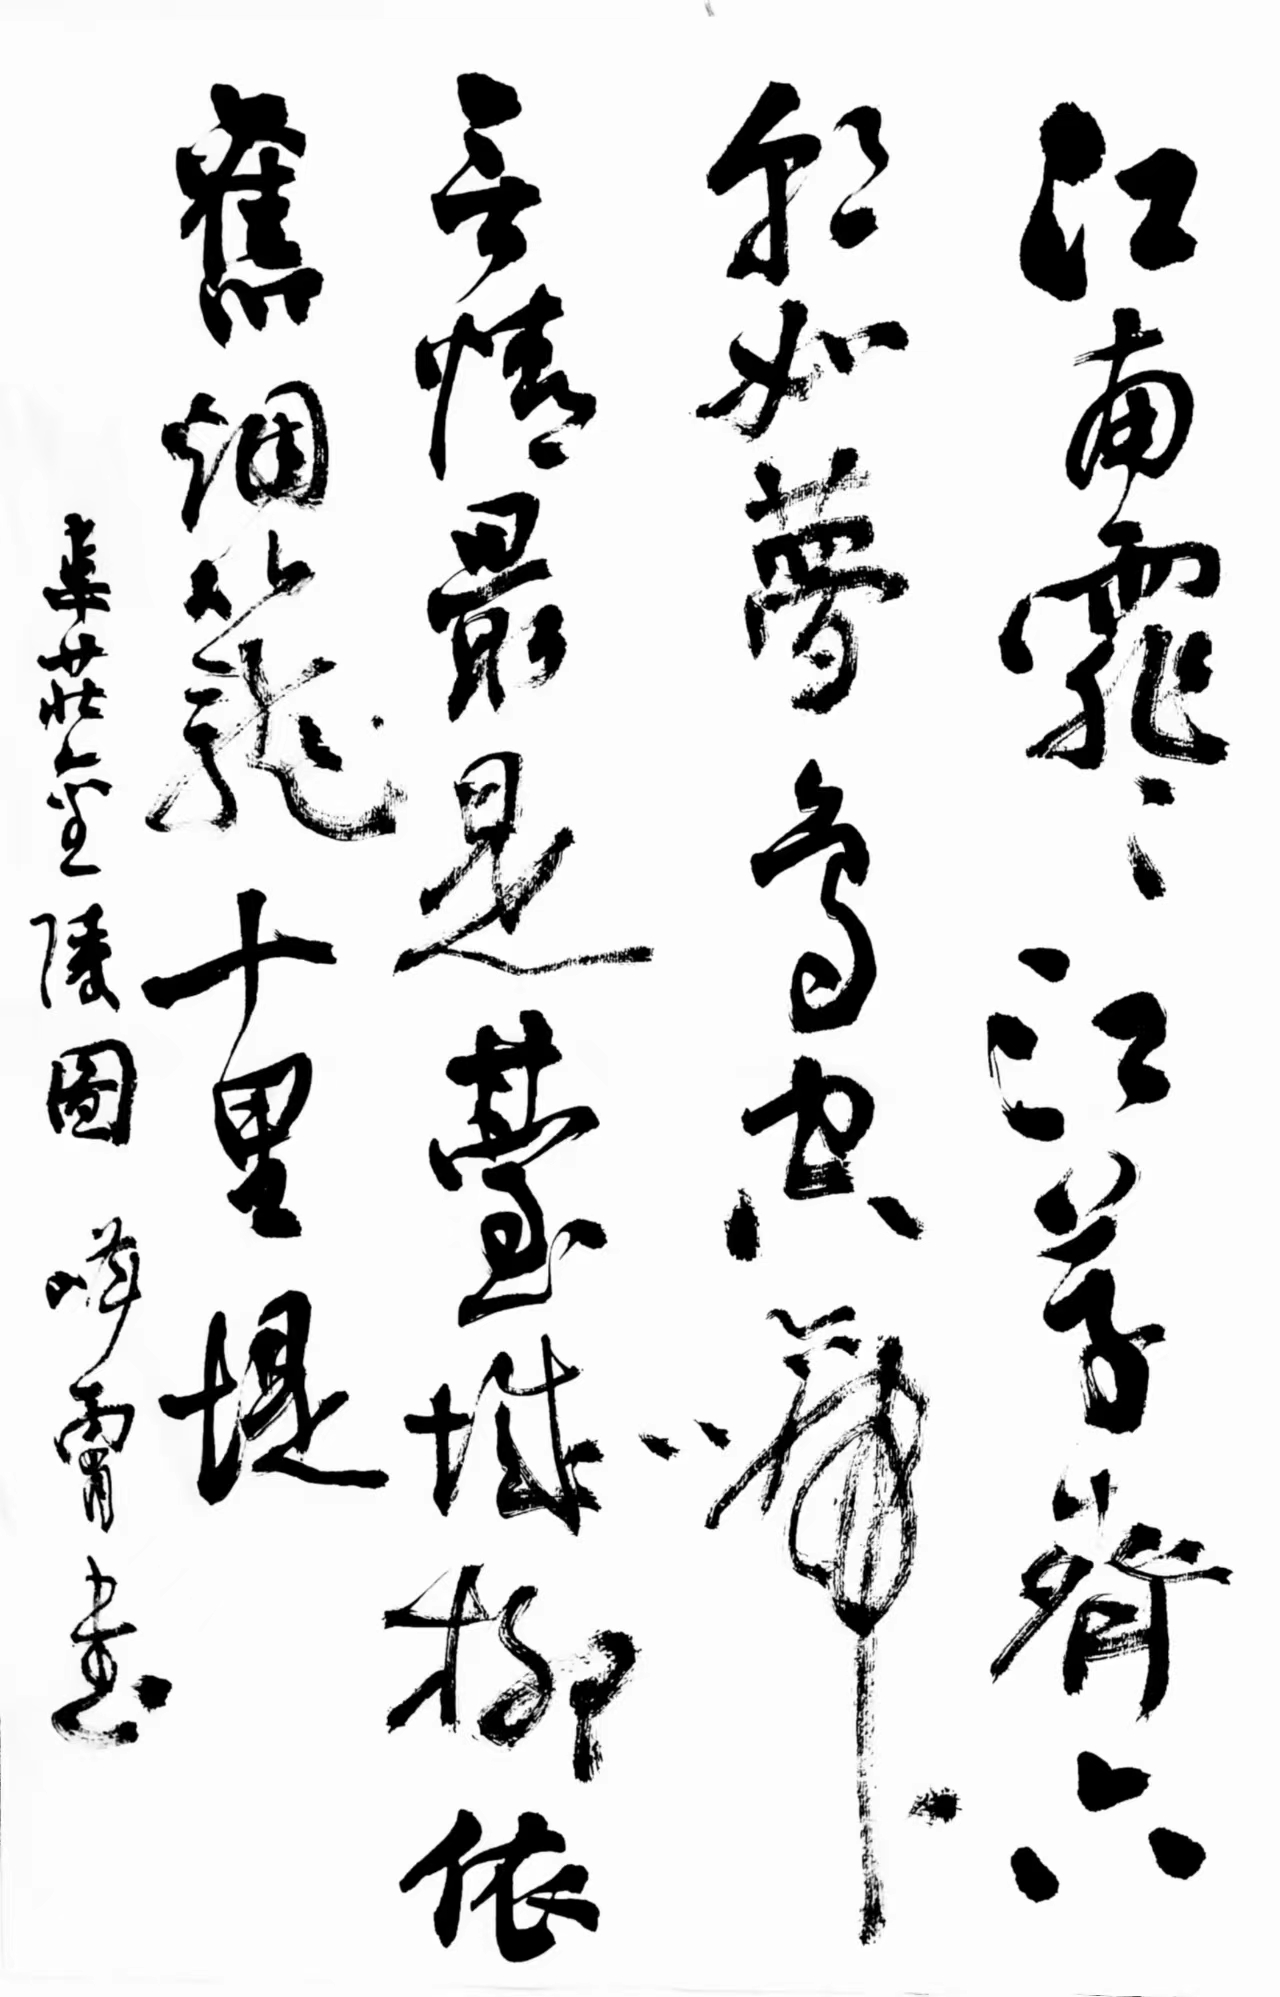 江南霏霏江草齊六
朝如夢鳥空啼
无情最是臺城柳依
舊烟籠十里堤
韋莊金陵圖 霄书